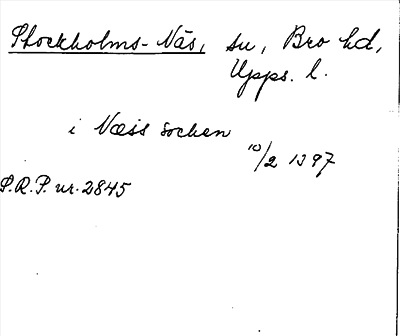 Stockholms-Näs, su, Bro hd,
Upps. l.
i Næss sochen
10/2 1397
S.R.P. nr. 2845